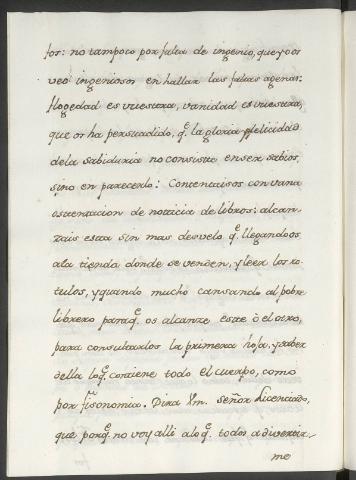 tos: no tampoco por falta de ingenio, que yo os
veo ingeniosos en hallar las faltas agenas:
flogedad es vuestra, vanidad es vuestra,
que os ha persuadido, q.e la gloria y felicidad
de la sabiduria no consiste en ser sabios,
sino en parecerlo: Contentaisos con vana
ostentacion de noticia de libros: alcan-
zais esta sin mas desvelo q.e llegandoos
a la tienda donde se venden, y leer los ro-
tulos, y quando mucho cansando al pobre
librero paraq.e os alcanze este ò el otro,
para consultarlos la primera hoja, y saber
della loq.e contiene todo el cuerpo, como
por fisonomia. Dira Vm. señor Licenciado,
que porq.e no voy alli a loq.e todos a divertir-
me